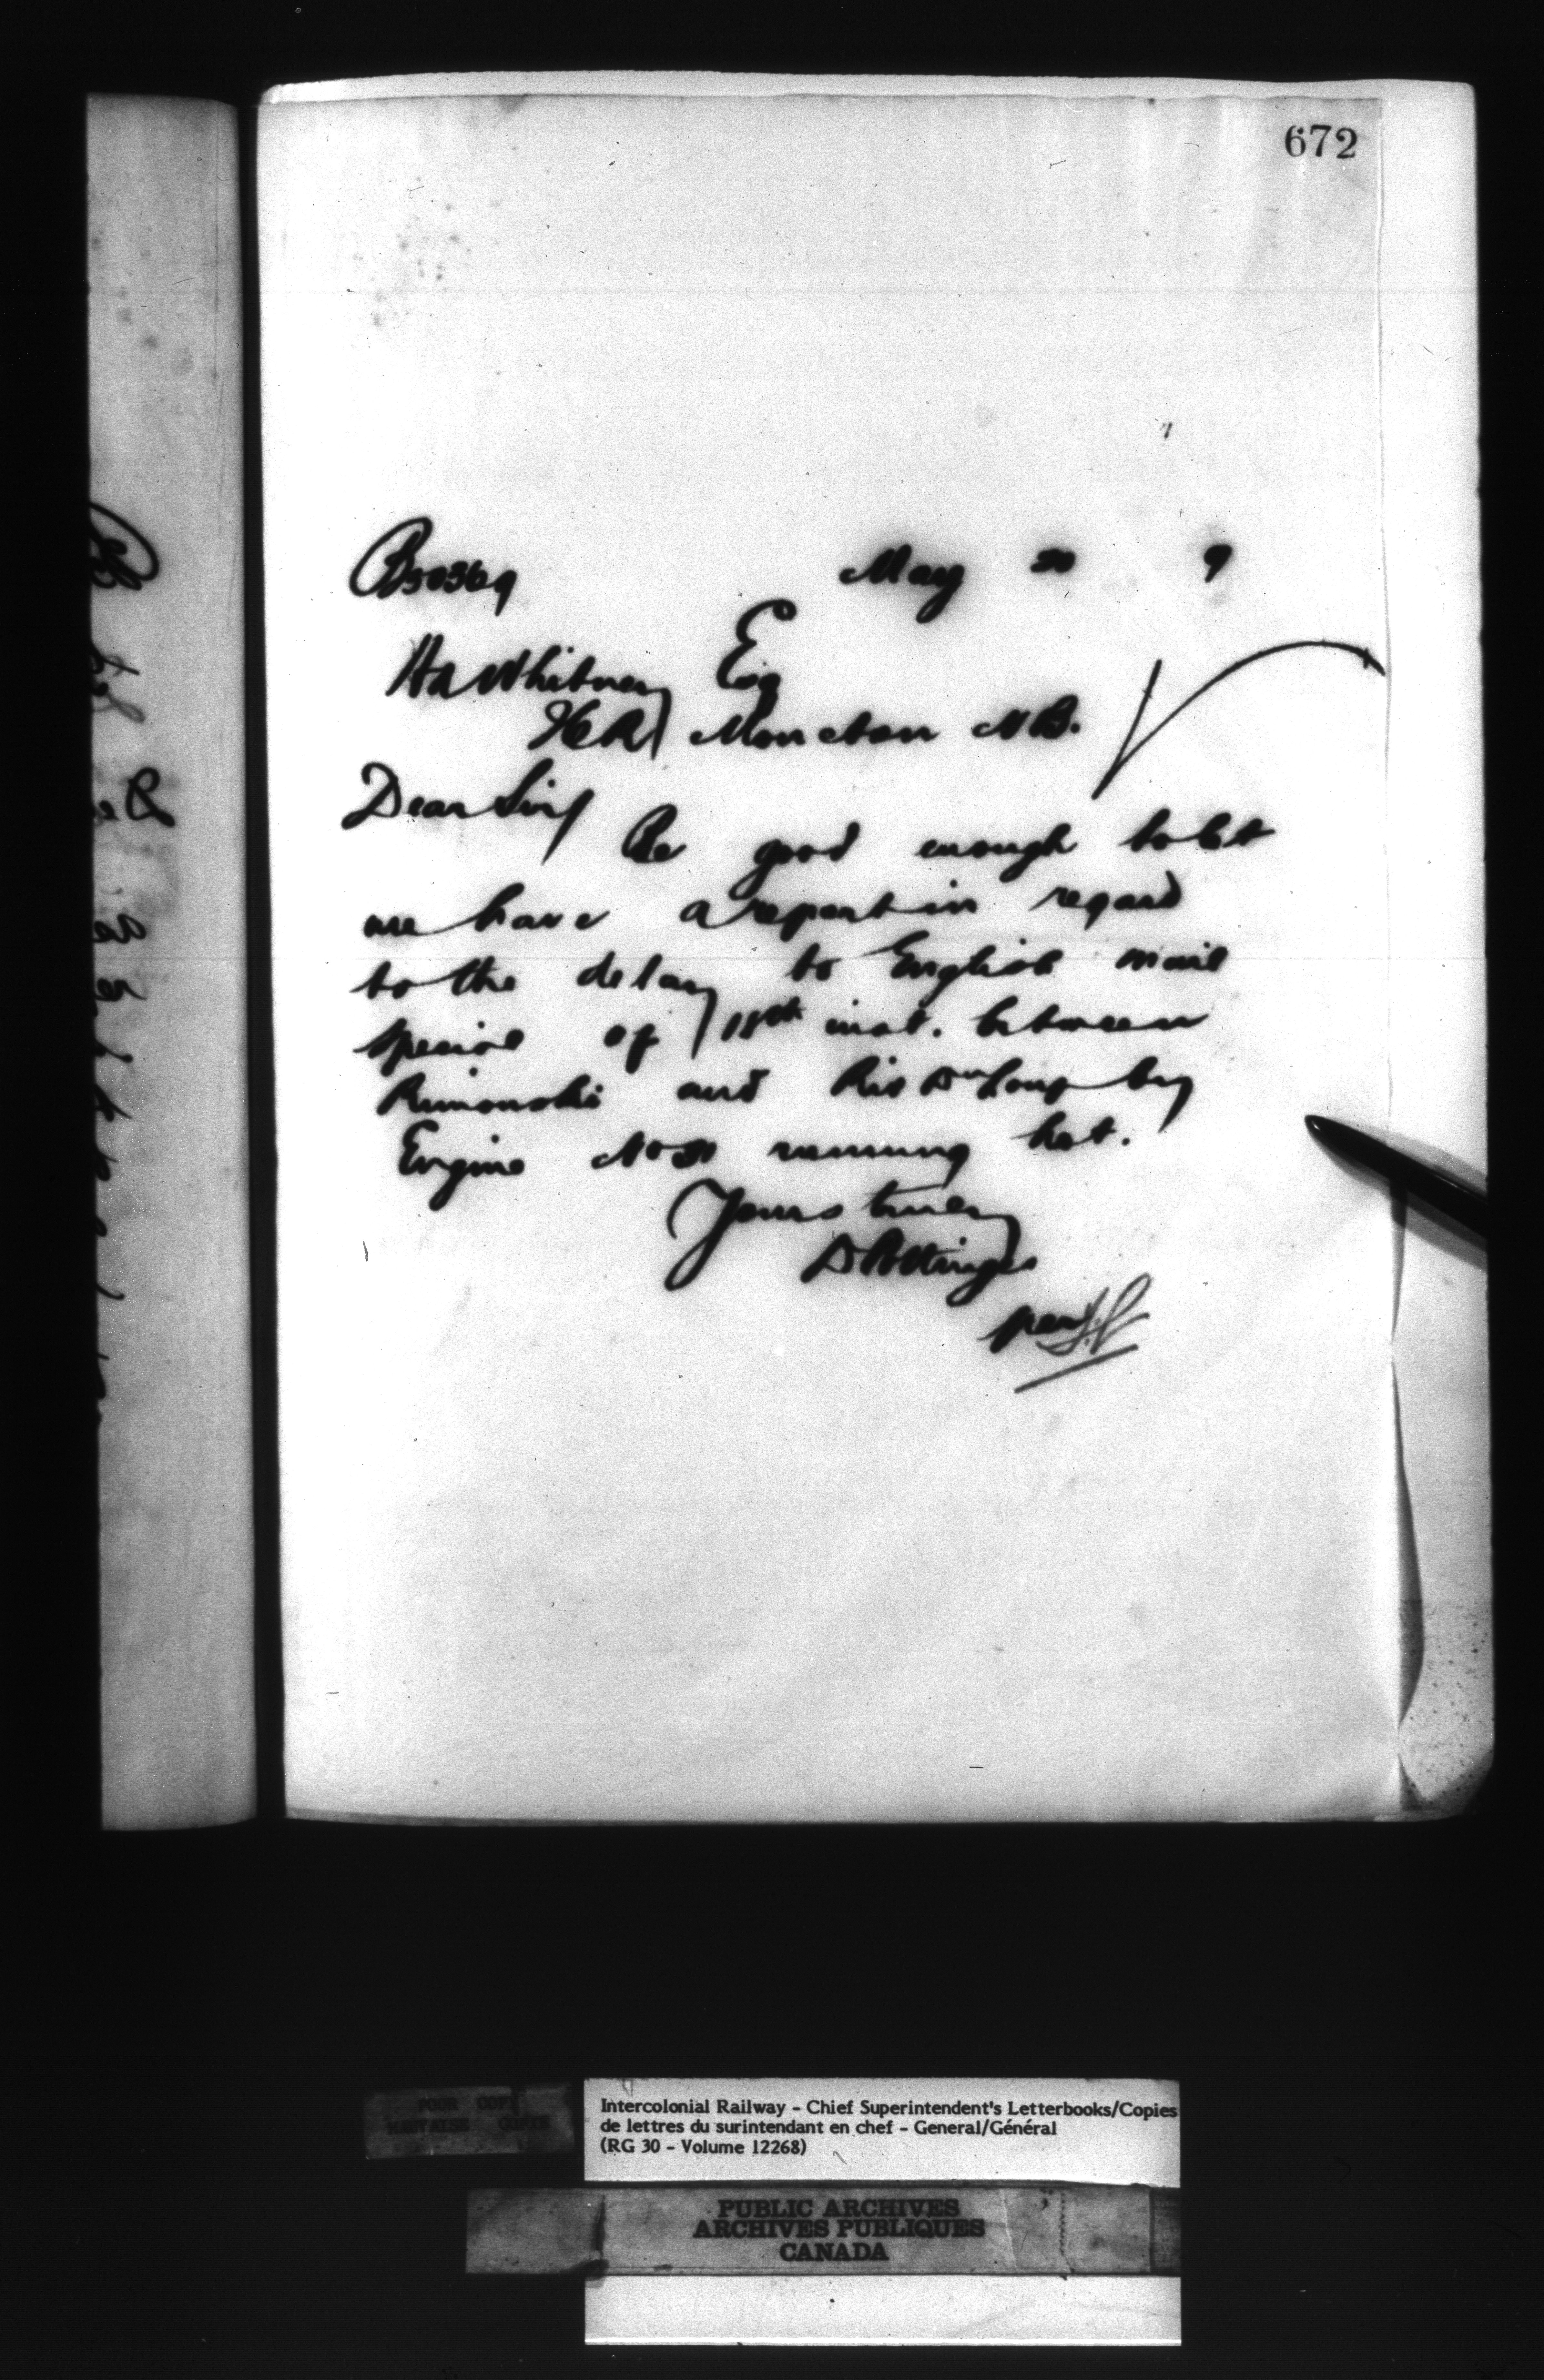 672
May 9
HA Whitney Esq
Moncton NB.
Dear Sir/
Be good enough to let
me have a report in regard
to the delay to English mail
special of 18th inst. between
Rimouski and Riv Du Loup by
Engine No running hot.
Yours truly
D Pottinger
per
POOR COPY
MAUVAISE COPIE
Intercolonial Railway - Chief Superintendent's Letterbooks/Copies
de lettres du surintendant en chef - General/Général
(RG 30 - Volume 12268)
PUBLIC ARCHIVES
ARCHIVES PUBLIQUES
CANADA